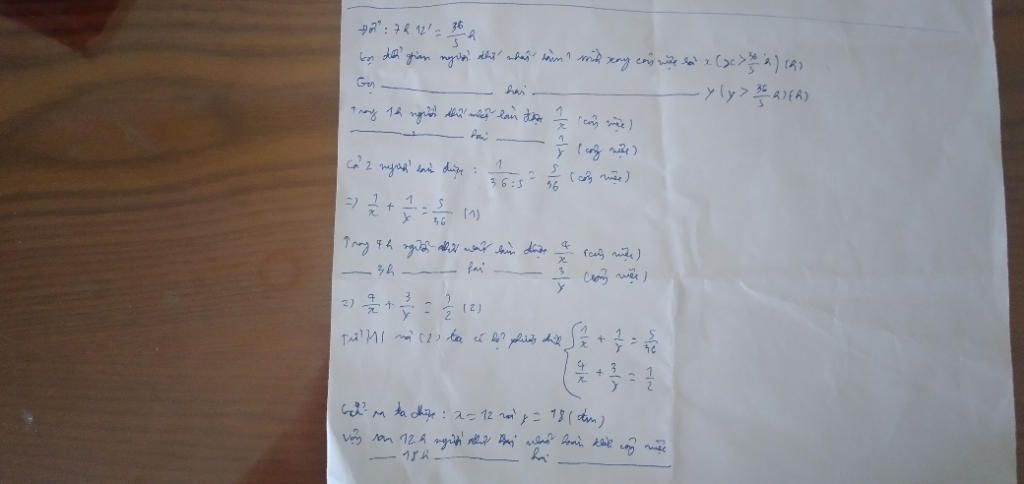 Đổi : 7h 12' = 36/5 h
Gọi thời gian người thứ nhất làm 1 mình xong công việc là x (x > 36/5 h) (h)
Gọi ______ hai ______ y (y > 36/5 h) (h)
Trong 1h người thứ nhất làm được 1/x (công việc)
______ hai ______ 1/y (công việc)
Cả 2 người làm được : 1/36:5 = 5/36 (công việc)
=> 1/x + 1/y = 5/36 (1)
Trong 4h người thứ nhất làm được 4/x (công việc)
___ 3h ______ hai ______ 3/y (công việc)
=> 4/x + 3/y = 1/2 (2)
Từ (1) và (2) ta có hệ phương trình { 1/x + 1/y = 5/36
4/x + 3/y = 1/2
Giải ra ta được : x = 12 và y = 18 (t/m)
Vậy sau 12h người thứ nhất hoàn công việc
___ 18h ______ hai ______